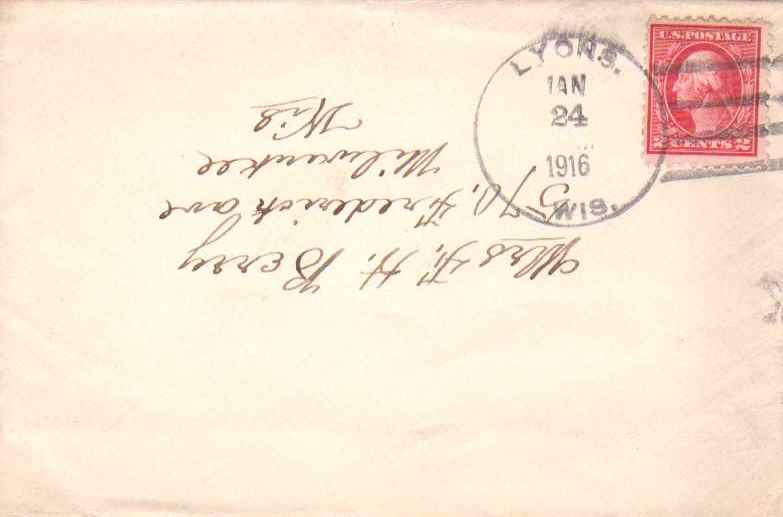 LYONS.
JAN
24
1916
WIS.
U.S. POSTAGE
2 CENTS 2
Mrs F. H. Berry
570. Frederick ave
Milwaukee
Wis